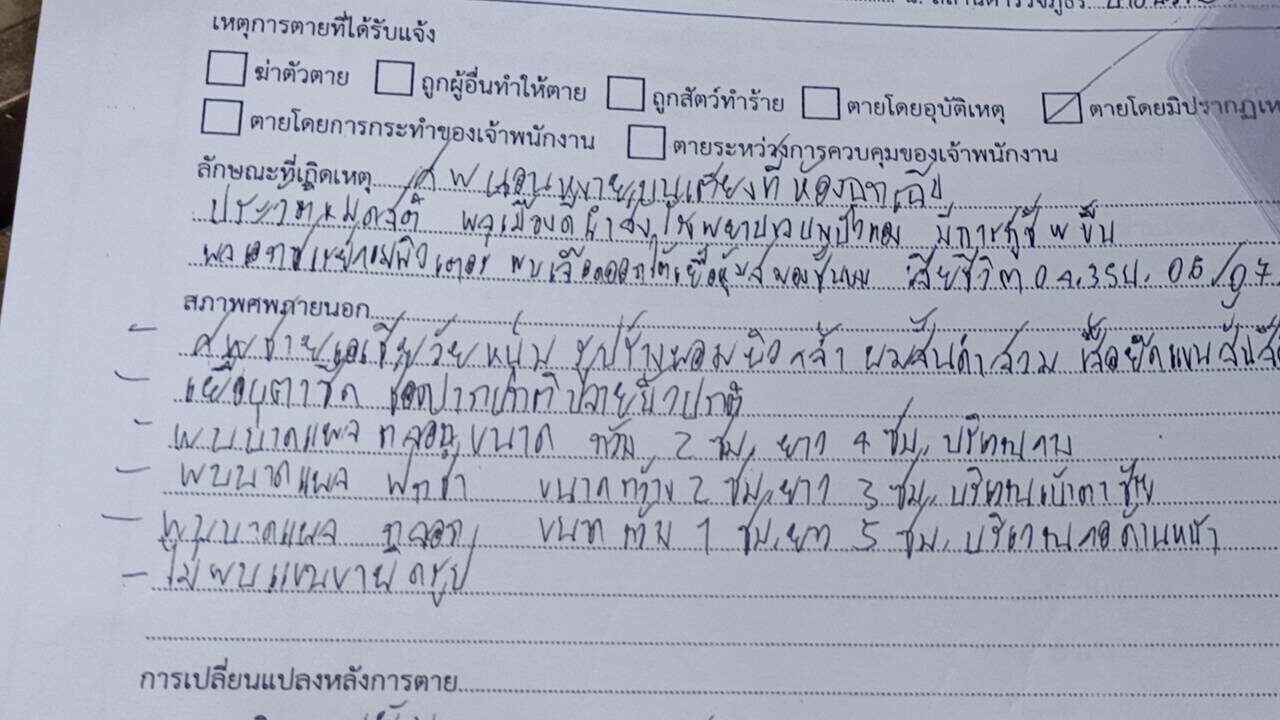 เหตุการตายที่ได้รับแจ้ง
ฆ่าตัวตาย ถูกผู้อื่นทำให้ตาย ถูกสัตว์ทำร้าย ตายโดยอุบัติเหตุ ตายโดยมิปรากฏเห
ตายโดยการกระทำของเจ้าพนักงาน ตายระหว่างการควบคุมของเจ้าพนักงาน
ลักษณะที่เกิดเหตุ ศพนอนหงายบนเตียงที่ห้องฉุกเฉิน
ประวัติหมดสติ พลเมืองดีนำส่งโรงพยาบาล มีการกู้ชีพขึ้น
ผลเอกซเรย์คอมพิวเตอร์ พบเลือดออกใต้เยื่อหุ้มสมองชั้นบน เสียชีวิต 04.35 น. 05/07
สภาพศพภายนอก
- ศพชายเอเชียวัยหนุ่ม รูปร่างผอม ผิวคล้ำ ผมสีดำ สวมเสื้อยืดแขนสั้น
- เยื่อบุตาซีด ช่องปากปกติ ปลายนิ้วปกติ
- พบบาดแผลถลอก ขนาด กว้าง 2 ซม. ยาว 4 ซม. บริเวณ
- พบบาดแผล ฟกช้ำ ขนาดกว้าง 2 ซม. ยาว 3 ซม. บริเวณเบ้าตาซ้าย
- พบบาดแผล ถลอก ขนาดกว้าง 1 ซม. ยาว 5 ซม. บริเวณคอด้านหน้า
- ไม่พบแขนขาผิดรูป
การเปลี่ยนแปลงหลังการตาย